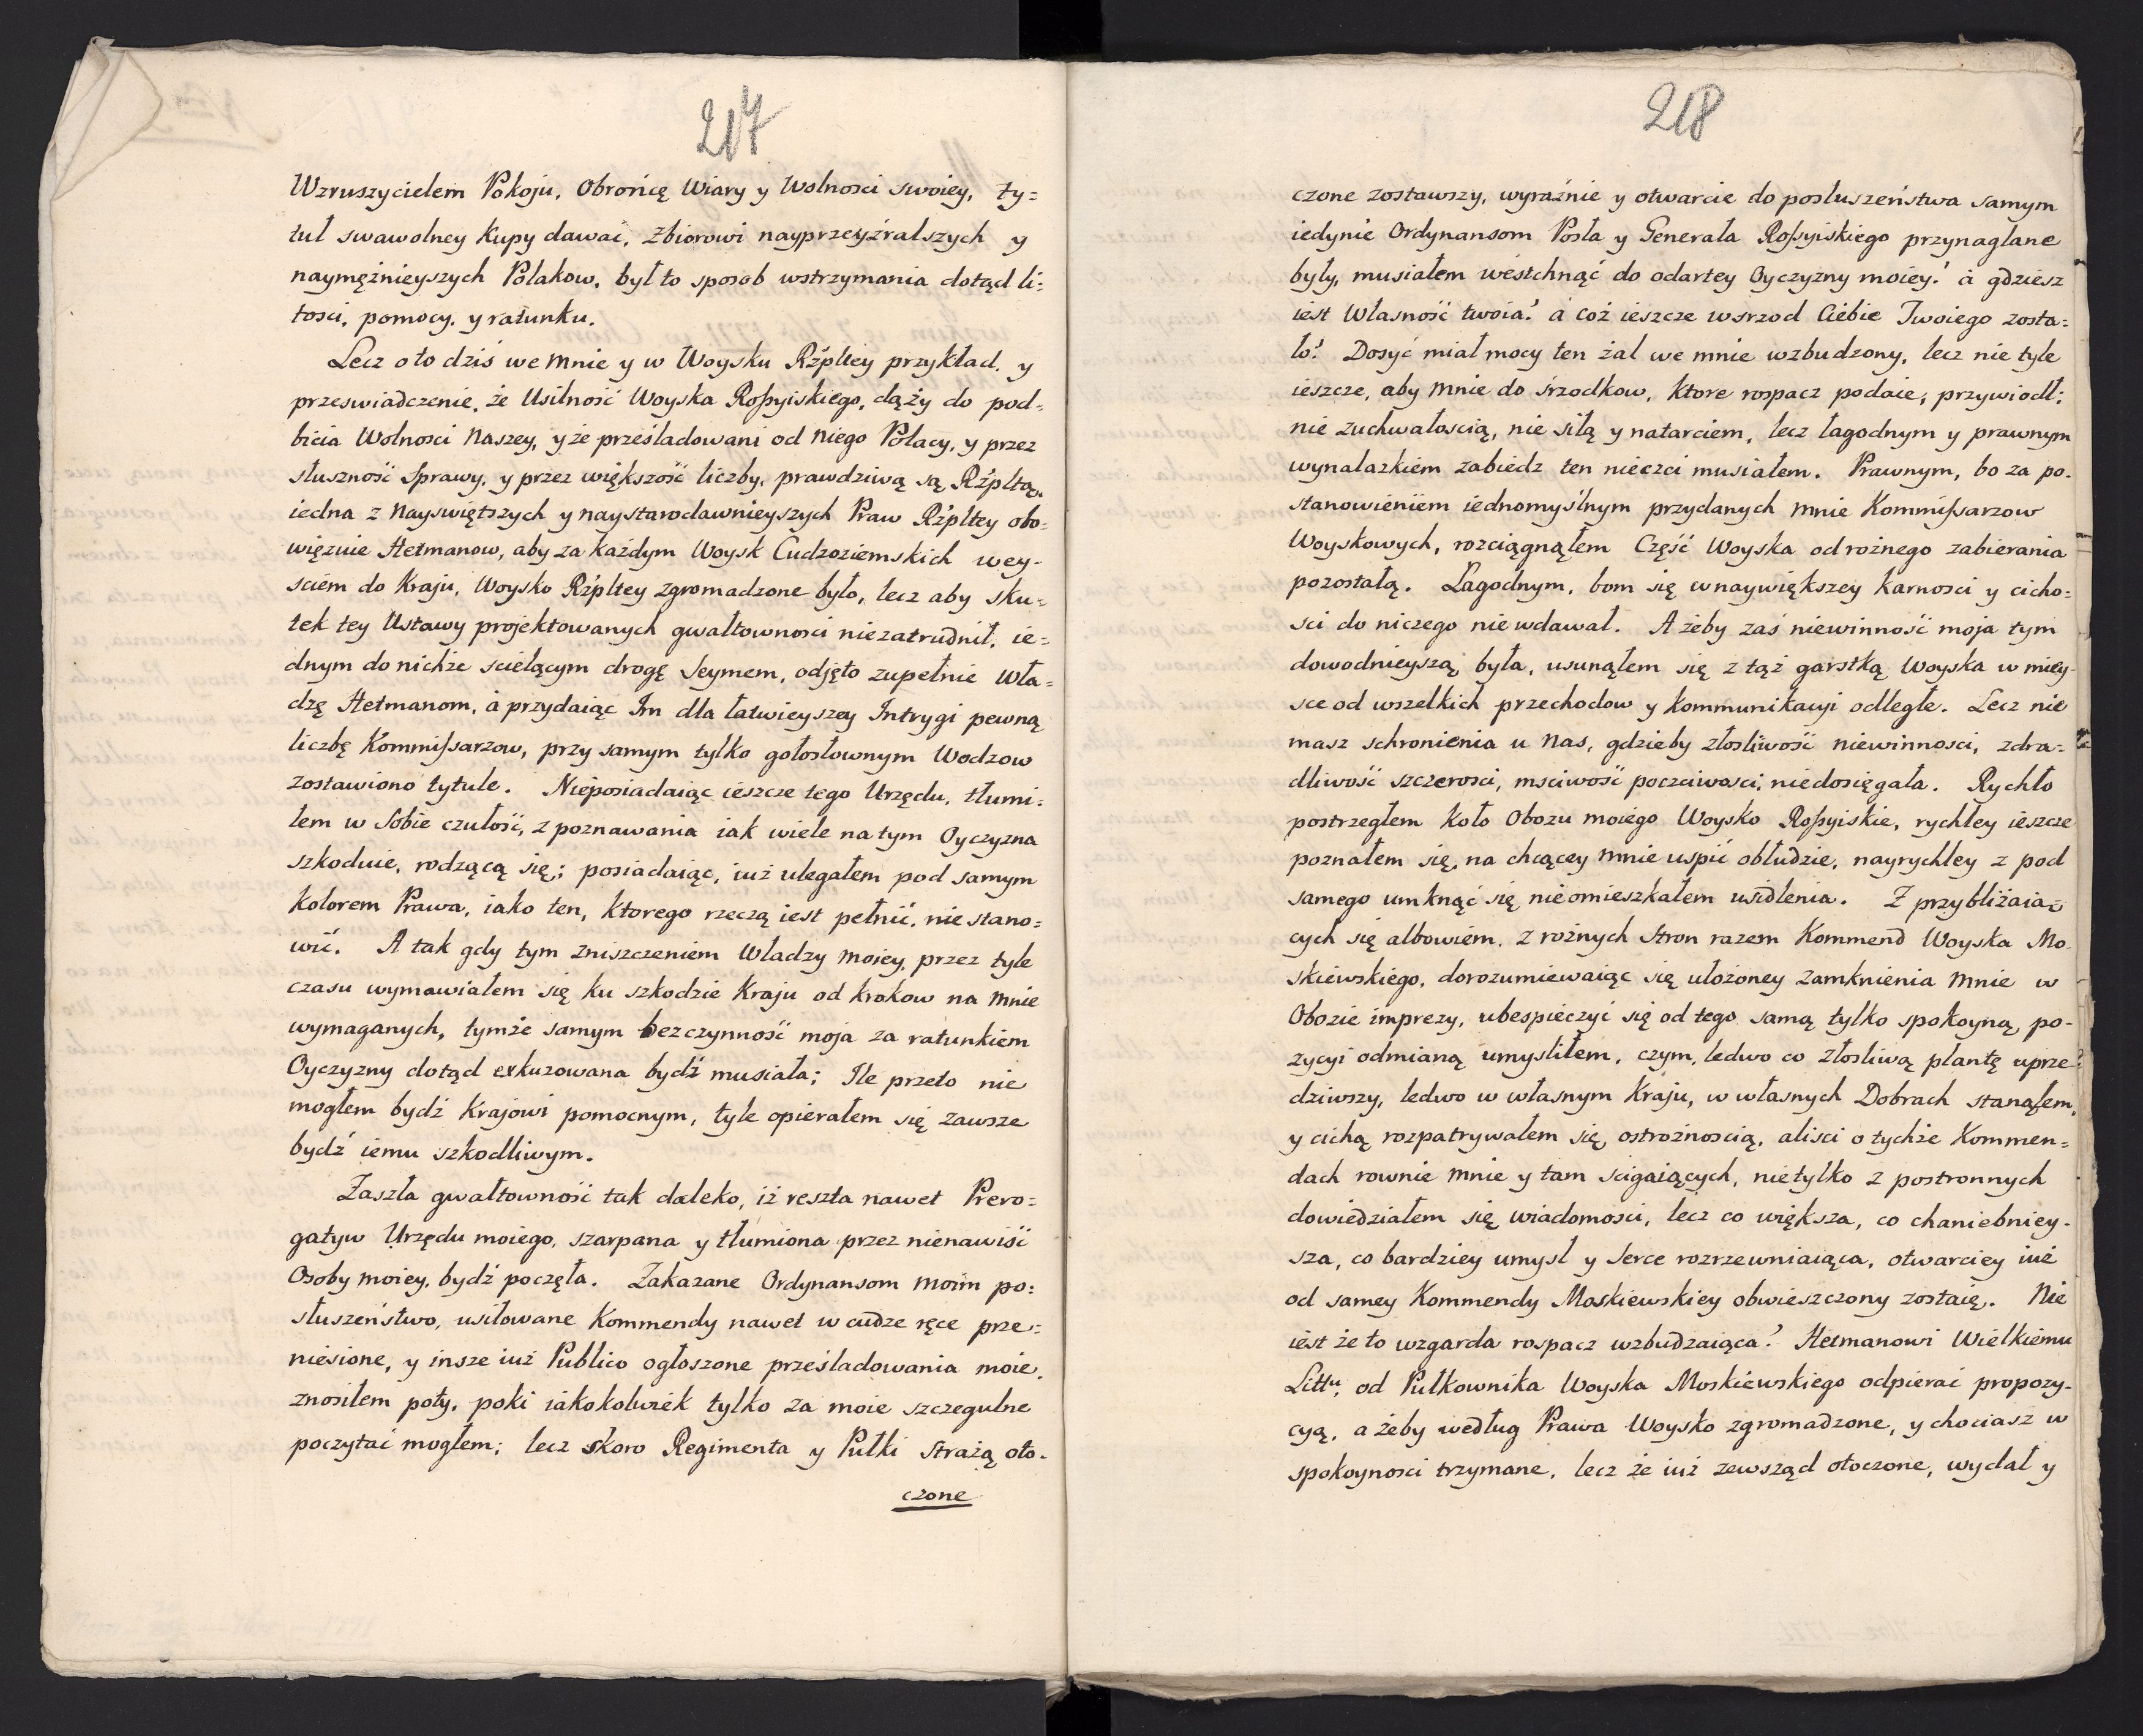 217
Wzruszycielem Pokoju, Obrońcę Wiary y Wolnosci swoiey, ty=
tuł swawolney Kupy dawać, Zbiorowi nayprzeyźralszych y
naymężnieyszych Polakow, był to sposob wstrzymania dotąd li=
tosci, pomocy, y ratunku.
Lecz oto dziś we mnie y w Woysku Rzpltey przykład, y
przeswiadczenie, że Usilność Woyska Roßyiskiego, dąży do pod=
bicia Wolnosci Naszey, y że prześladowani od niego Polacy, y przez
słuszność Sprawy, y przez większość liczby, prawdziwą są Rzpltą,
iedna z Nayswiętszych y naystarodawnieyszych Praw Rzpltey obo=
więzuie Hetmanow, aby za każdym Woysk Cudzoziemskich wey-
sciem do Kraju, Woysko Rzpltey zgromadzone było, lecz aby sku=
tek tey Ustawy projektowanych gwałtownosci niezatrudnił, ie=
dnym do nichże scielącym drogę Seymem, odjęto zupełnie Wła=
dzę Hetmanom, á przydaiąc Im dla łatwieyszey Intrygi pewną
liczbę Kommißarzow, przy samym tylko gołosłownym Wodzow
zostawiono tytule. Nieposiadaiąc ieszcze tego Urzędu, tłumi=
łem w Sobie czułość, z poznawania iak wiele na tym Oyczyzna
szkoduie, rodzącą się; posiadaiąc, iuż ulegałem pod samym
kolorem Prawa, iako ten, ktorego rzeczą iest pełnić, nie stano=
wić. A tak gdy tym Zniszczeniem Władzy moiey, przez tyle
czasu wymawiałem się ku szkodzie Kraju od krokow na mnie
wymaganych, tymże samym bezczynność moja za ratunkiem
Oyczyzny dotąd exkuzowana bydź musiała; Ile przeto nie
mogłem bydź Krajowi pomocnym, tyle opierałem się zawsze
bydź iemu szkodliwym.
Zaszła gwałtowność tak daleko, iż reszta nawet Prero=
gatyw Urzędu moiego, szarpana y tłumiona przez nienawiść
Osoby moiey, bydź poczęła. Zakazane Ordynansom moim po=
słuszeństwo, usiłowane Kommendy nawet w cudze ręce prze=
niesione, y insze iuż Publico ogłoszone prześladowania moie,
znosiłem poty, poki iakokolwiek tylko za moie szczegulne
poczytać mogłem; lecz skoro Regimenta y Pułki Strażą oto-
czone
218
czone zostawszy, wyraźnie y otwarcie do posłuszeństwa samym
iedynie Ordynansom Posła y Generała Roßyiskiego przynaglane
były, musiałem westchnąć do odartey Oyczyzny moiey! á gdziesz
iest Własność twoia? á coż ieszcze wsrzod Ciebie Twoiego zosta=
ło? Dosyć miał mocy ten żal we mnie wzbudzony, lecz nie tyle
ieszcze, aby mnie do śrzodkow, ktore rospacz podaie, przywiodł;
nie zuchwałoscią, nie siłą y natarciem, lecz łagodnym y prawnym
wynalazkiem zabiedz ten nieczci musiałem. Prawnym, bo za po-
stanowieniem iednomyślnym przydanych mnie Kommißarzow
Woyskowych, rozciągnąłem Część Woyska od rożnego zabierania
pozostałą. Łagodnym, bom się w naywiększey karnosci y cicho=
sci do niczego niewdawał. Ażeby zaś niewinność moja tym
dowodnieyszą była, usunąłem się z tąż garstką Woyska w miey-
sce od wszelkich przechodow y kommunikacyi odległe. Lecz nie
masz schronienia u Nas, gdzieby złosliwość niewinnosci, zdra=
dliwość szczerosci, msciwość poczciwosci, niedosięgała. Rychło
postrzegłem koło Obozu moiego Woysko Roßyiskie, rychley ieszcze
poznałem się na chcącey mnie uspić obłudzie, nayrychley z pod
samego umknąć się nieomieszkałem usidlenia. Z przybliżaią=
cych się albowiem, z rożnych Stron razem Kommend Woyska Mo-
skiewskiego, dorozumiewaiąc się ułożoney zamknienia mnie w
Obozie imprezy, ubespieczyć się od tego samą tylko spokoyną po-
zycyi odmianą umysliłem, czym, ledwo co złosliwą plantę uprze-
dziwszy, ledwo w własnym Kraju, w własnych Dobrach stanąłem,
y cichą rozpatrywałem się ostrożnoscią, alisci o tychże Kommen=
dach rownie mnie y tam scigaiących, nietylko z postronnych
dowiedziałem się wiadomosci, lecz co większa, co chaniebniey-
sza, co bardziey umysł y Serce rozrzewniaiąca, otwarciey iuż
od samey Kommendy Moskiewskiey obwieszczony zostaię. Nie
iest że to wzgarda rospacz wzbudzaiąca? Hetmanowi Wielkiemu
Littu, od Pułkownika Woyska Moskiewskiego odpierać propozy-
cyą, ażeby według Prawa Woysko zgromadzone, y chociasz w
spokoynosci trzymane, lecz że iuż zewsząd otoczone, wydał y